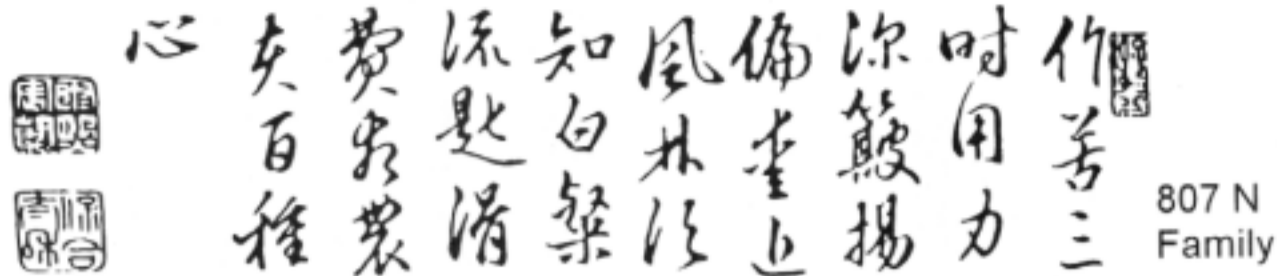 作苦三
時用力
深簸揚
偏愛近
風林須
知白粲
流匙滑
費盡農
夫百種
心
807 N
Family